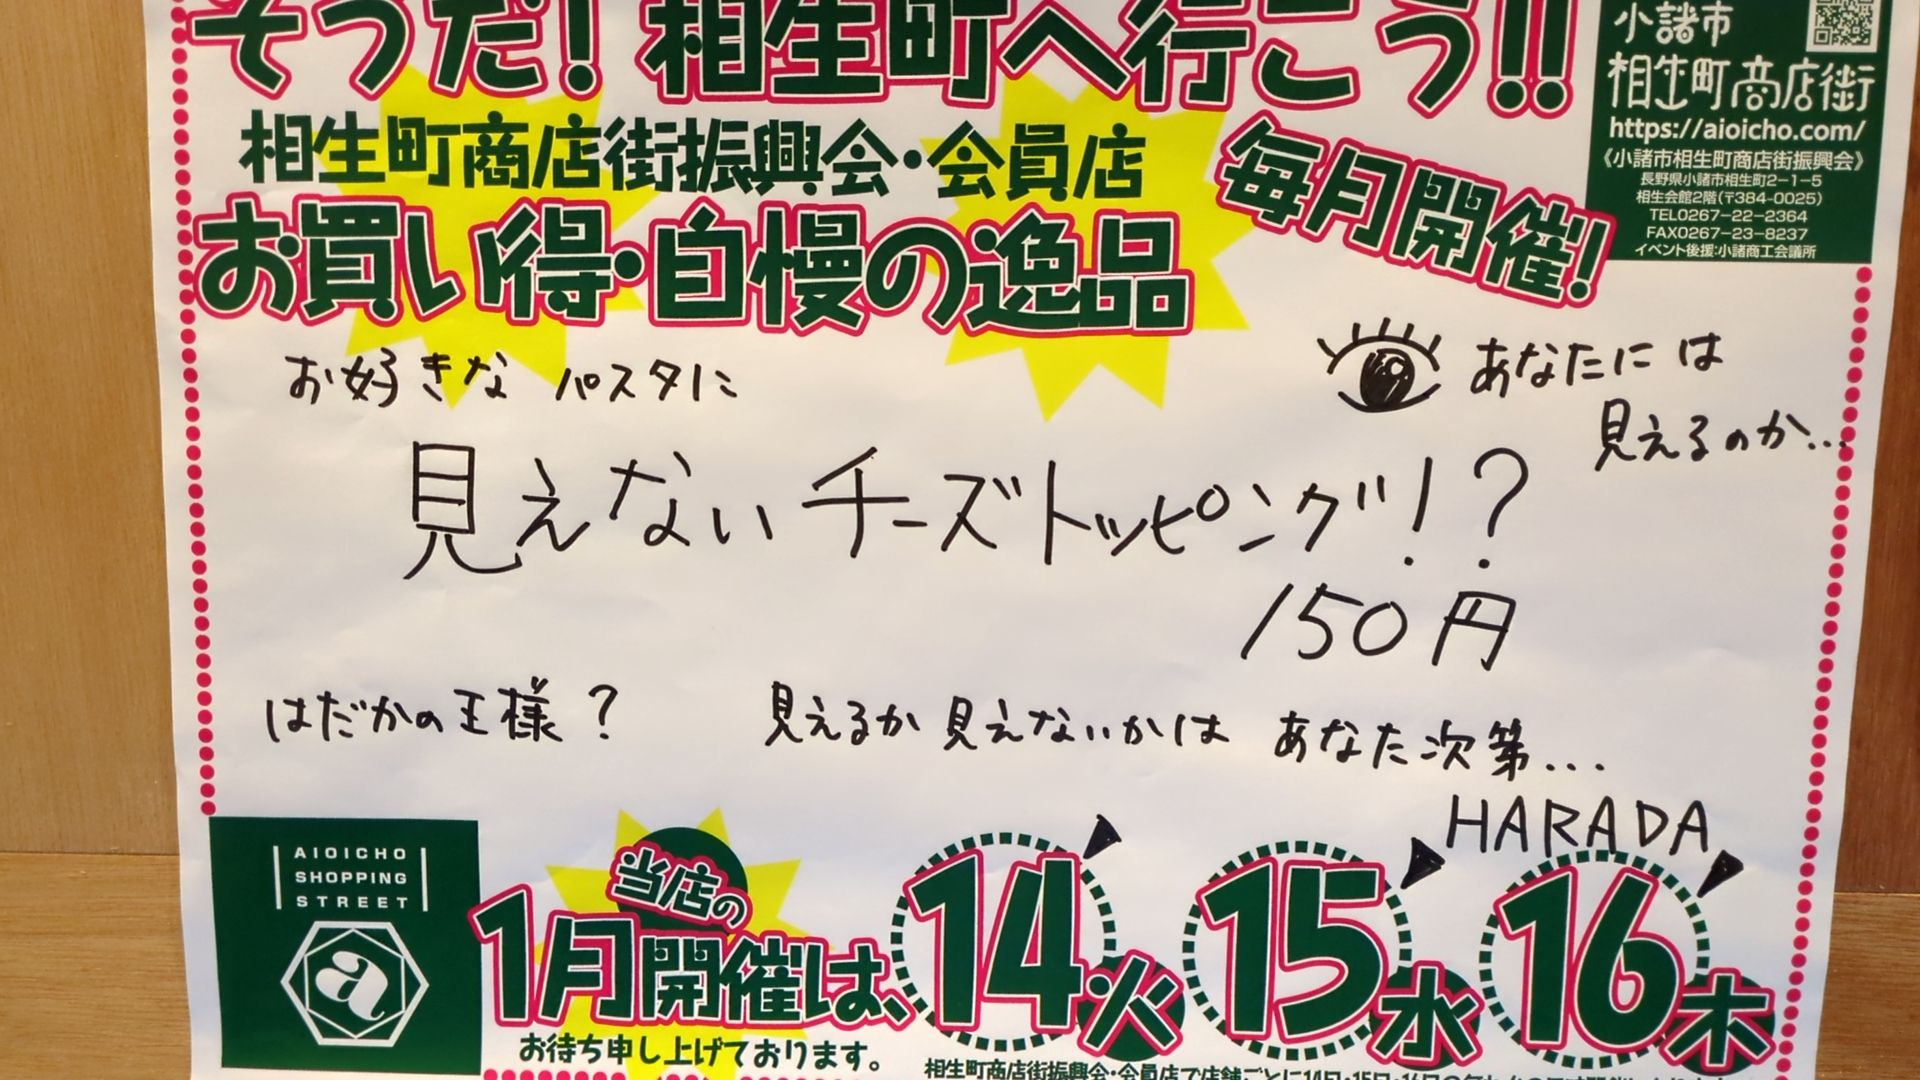 そうだ!相生町へ行こう!!
小諸市
相生町商店街
https://aioicho.com/
《小諸市相生町商店街振興会》
長野県小諸市相生町2-1-5
相生会館2階(〒384-0025)
TEL0267-22-2364
FAX0267-23-8237
イベント後援:小諸商工会議所
相生町商店街振興会・会員店
毎月開催!
お買い得・自慢の逸品
お好きな パスタに
あなたには
見えるのか...
見えないチーズトッピング!?
150円
はだかの王様? 見えるか見えないかは あなた次第...
HARADA
AIOICHO
SHOPPING
STREET
a
当店の
1月開催は、
14火 15水 16木
お待ち申し上げております。
相生町商店街振興会・会員店で店舗ごとに14日・15日・16日の